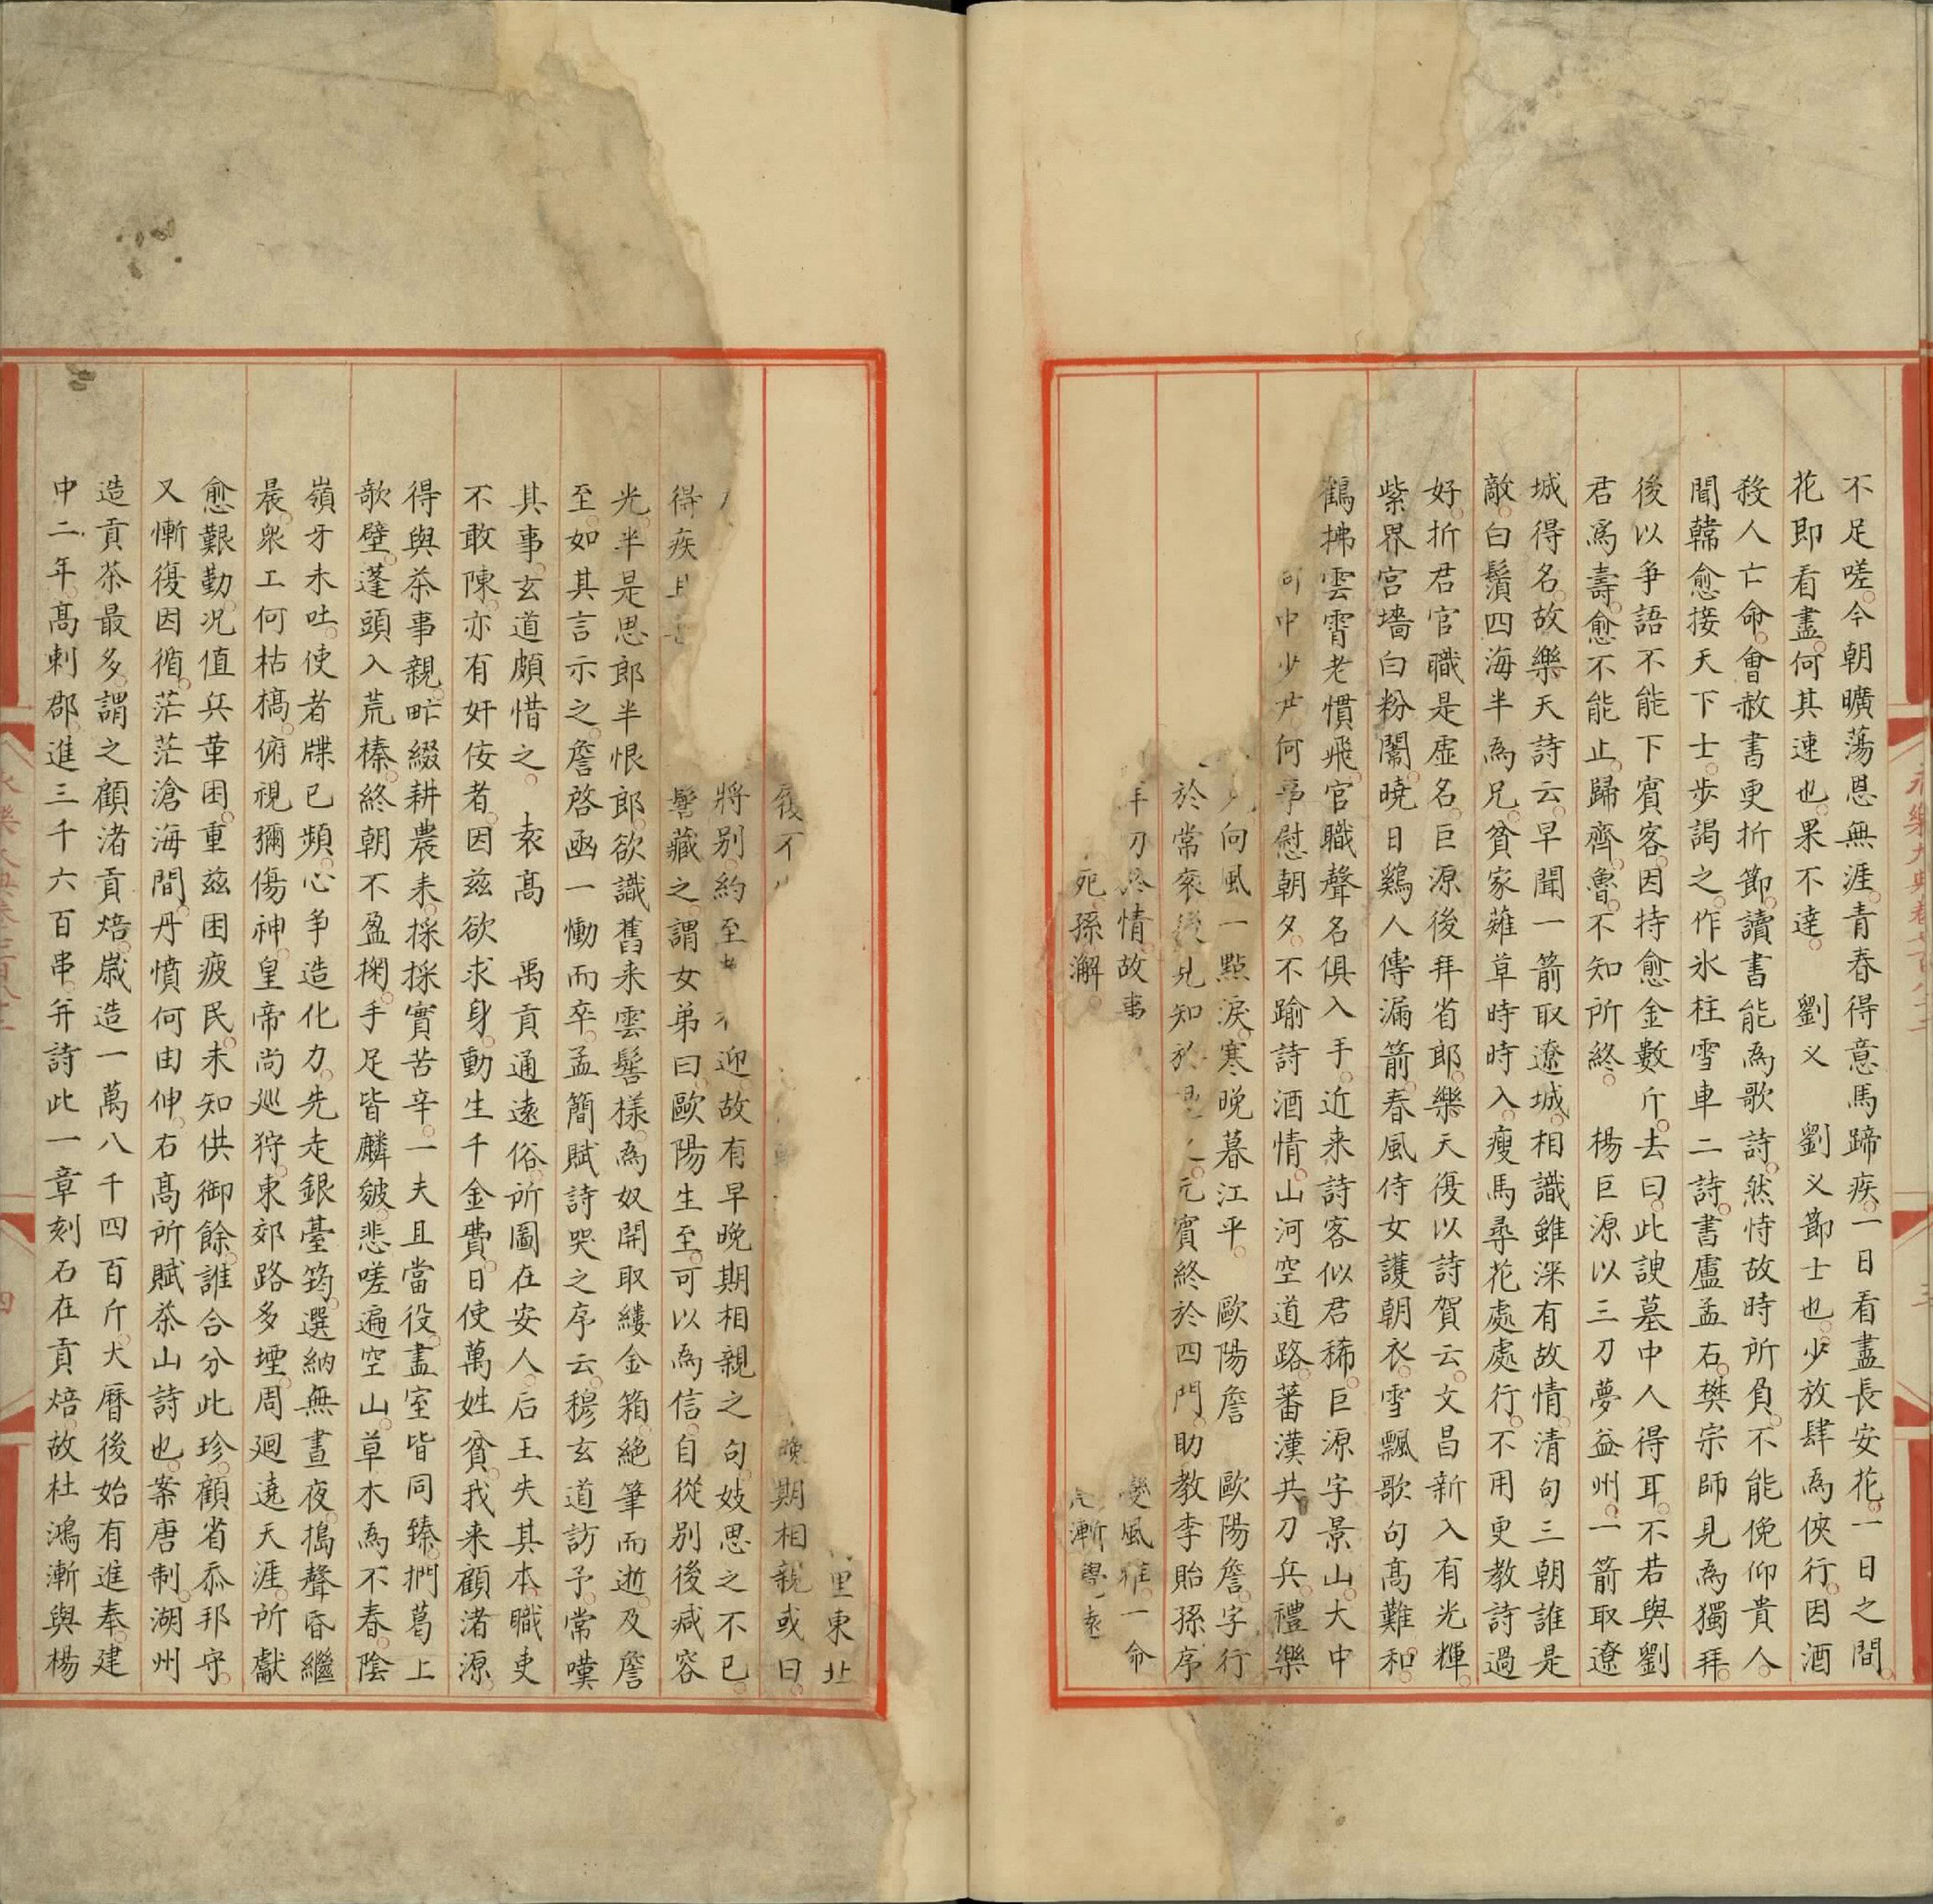 不足嗟今朝曠蕩恩無涯青春得意馬蹄疾一日看盡長安花一日之間
花即看盡何其速也果不達 劉义 劉义節士也少放肆為俠行因酒
殺人亡命會赦書更折節讀書能為歌詩然恃故時所負不能俛仰貴人
聞韓愈接天下士步謁之作氷柱雪車二詩書盧孟右樊宗師見為獨拜
後以爭語不能下賓客因持愈金數斤去曰此諛墓中人得耳不若與劉
君爲壽愈不能止歸齊魯不知所終 楊巨源以三刀夢益州一箭取遼
城得名故樂天詩云早聞一箭取遼城相識雖深有故情清句三朝誰是
敵白鬚四海半為兄貧家薙草時時入瘦馬尋花處處行不用更教詩過
好折君官職是虛名巨源後拜省郎樂天復以詩賀云文昌新入有光輝
紫界宮墻白粉闈曉日鷄人傳漏箭春風侍女護朝衣雪飄歌句高難和
鶴拂雲霄老慣飛官職聲名俱入手近来詩客似君稀巨源字景山大中
中少尹何爭慰朝夕不踰詩酒情山河空道路蕃漢共刀兵禮樂
向風一點淚寒晚暮江平 歐陽詹 歐陽詹字行
於常衮後見知於 元賓終於四門助教李貽孫序
情故事 變風雅一命
死孫澥 漸與袁
里東北
不 晚期相親或曰
將別約至 迎故有早晚期相親之句妓思之不已
得疾且 髻藏之謂女弟曰歐陽生至可以為信自從別後减容
光半是思郎半恨郎欲識舊来雲髻樣為奴開取縷金箱絶筆而逝及詹
至如其言示之詹啓凾一慟而卒孟簡賦詩哭之序云穆玄道訪予常嘆
其事玄道頗惜之 袁高 禹貢通遠俗所圖在安人后王失其本職吏
不敢陳亦有奸佞者因兹欲求身動生千金費日使萬姓貧我来顧渚源
得與茶事親甿綴耕農耒採採實苦辛一夫且當役盡室皆同臻捫葛上
欹壁蓬頭入荒榛終朝不盈掬手足皆麟皴悲嗟遍空山草木為不春陰
嶺牙未吐使者牒已頻心争造化力先走銀臺筠選納無晝夜搗聲昏繼
晨衆工何枯槁俯視彌傷神皇帝尚巡狩東郊路多堙周廻遶天涯所獻
愈艱勤况值兵革困重兹困疲民未知供御餘誰合分此珍顧省忝邦守
又慚復因循茫茫滄海間丹憤何由伸右高所賦茶山詩也案唐制湖州
造貢茶最多謂之顧渚貢焙嵗造一萬八千四百斤大曆後始有進奉建
中二年高刺郡進三千六百串并詩此一章刻石在貢焙故杜鴻漸與楊